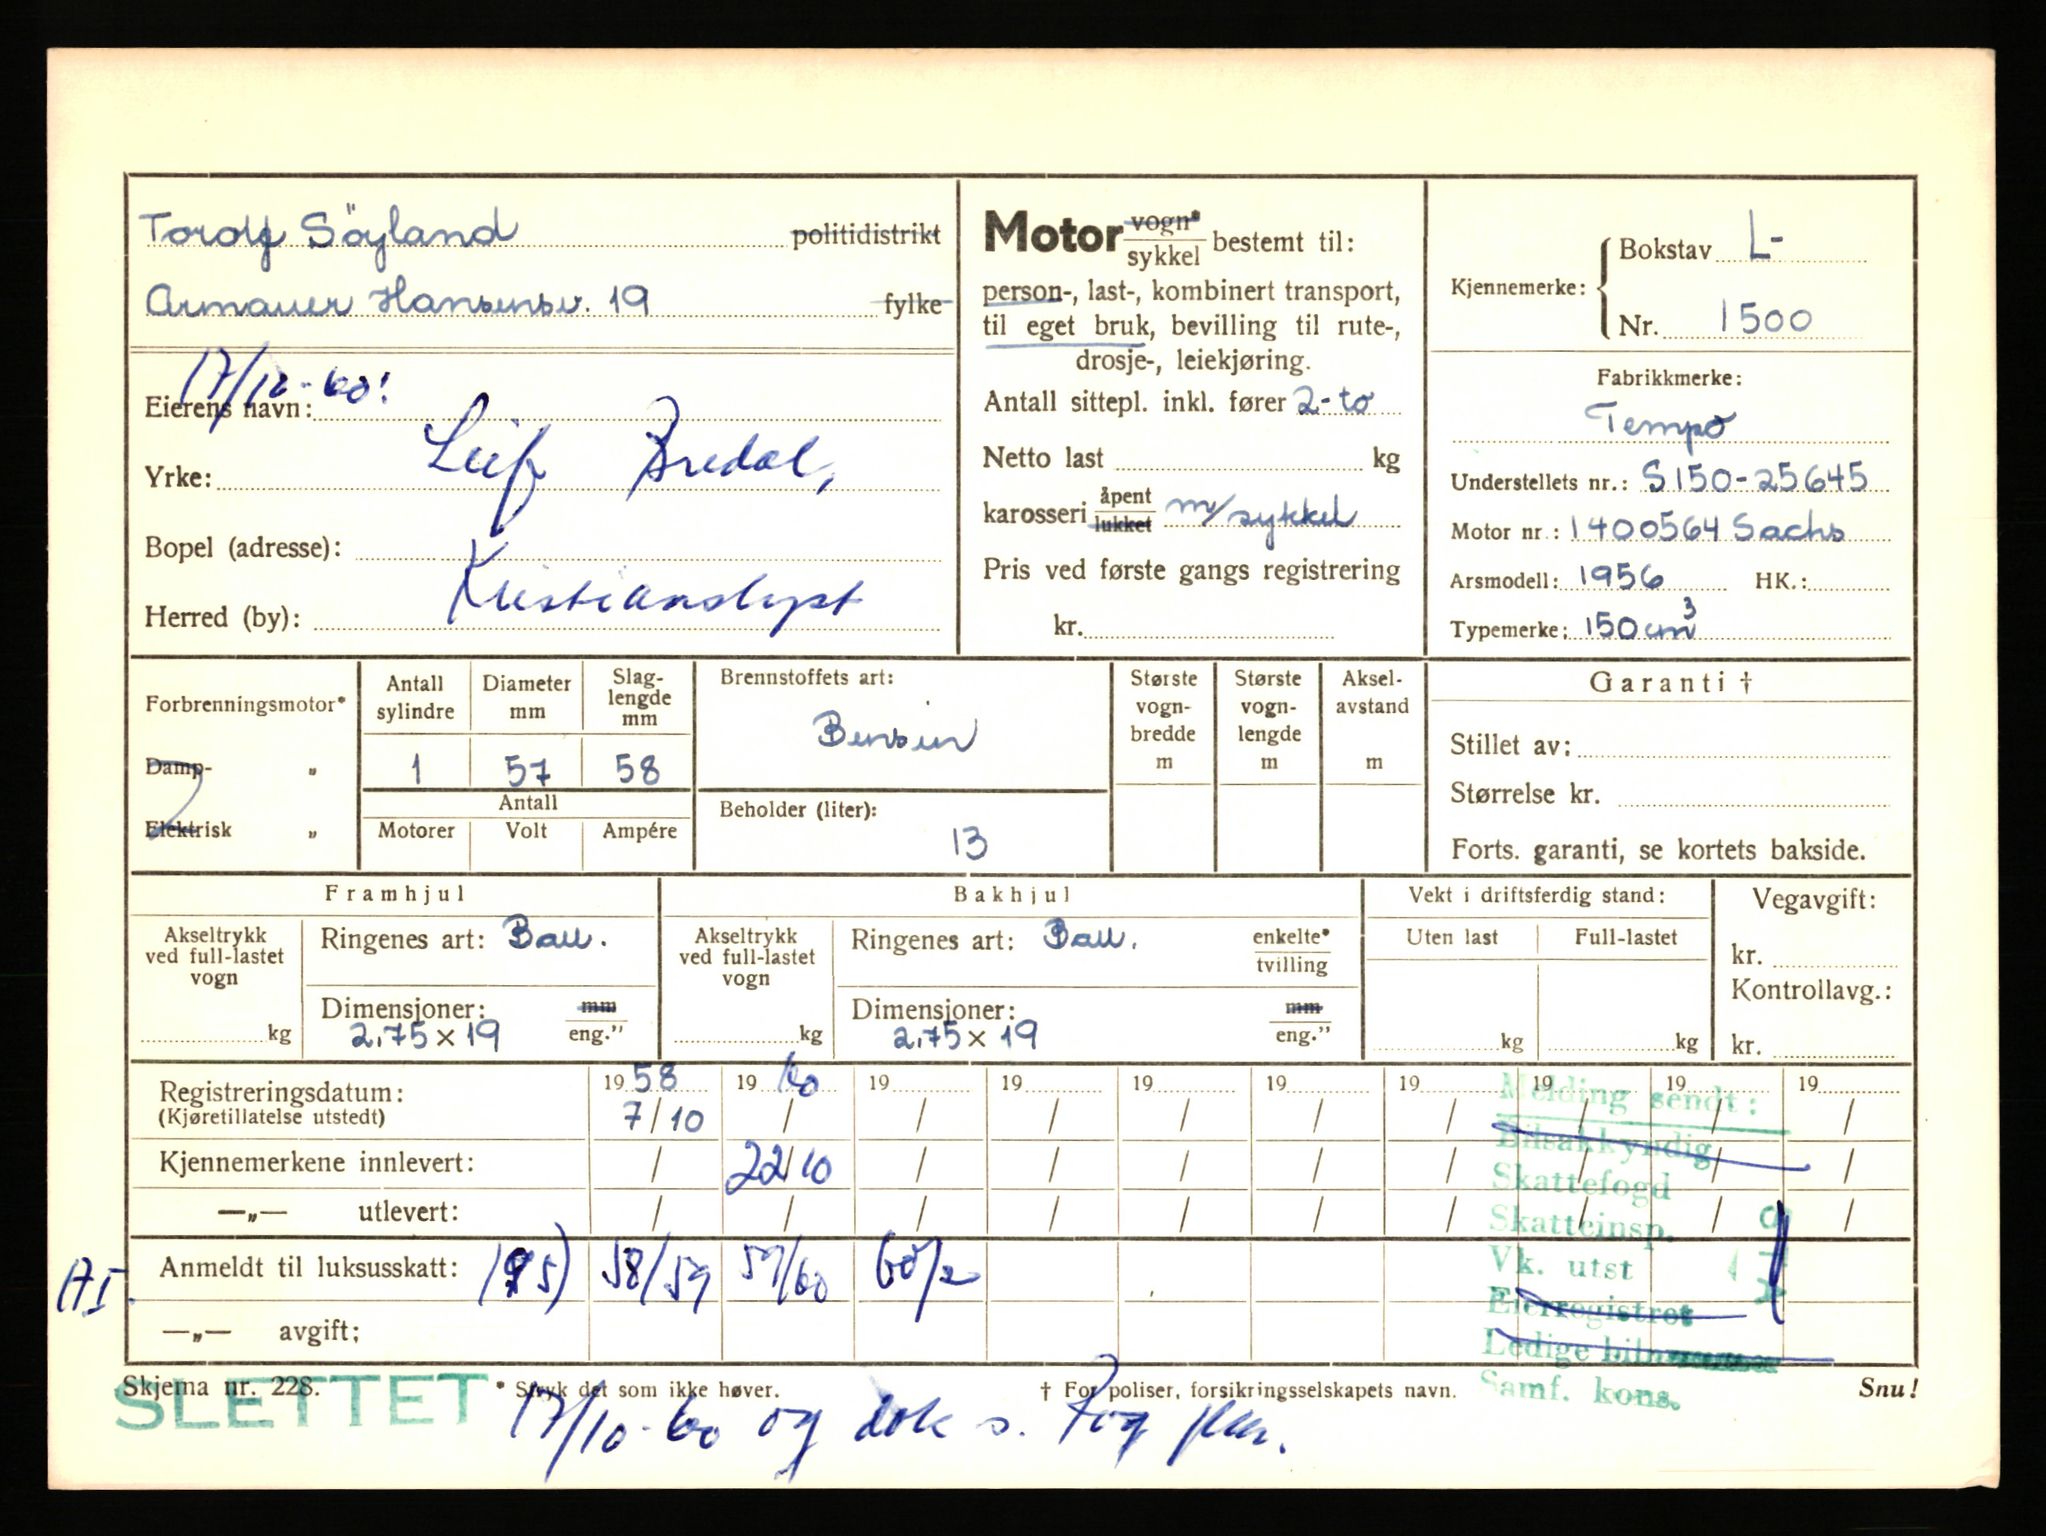 Torolf Söyland politidistrikt
Armauer Hansensv. 19 fylke
17/10-60!
Eierens navn:
Leif Bredal,
Yrke:
Bopel (adresse):
Kristianslyst
Herred (by):
Motor vogn* / sykkel bestemt til:
person-, last-, kombinert transport,
til eget bruk, bevilling til rute-,
drosje-, leiekjøring.
Antall sittepl. inkl. fører 2-to
Netto last kg
karosseri åpent / lukket m/sykkel
Pris ved første gangs registrering
kr.
Kjennemerke: { Bokstav L-
Nr. 1500
Fabrikkmerke:
Tempo
Understellets nr.: S150-25645
Motor nr.: 1400564 Sachs
Arsmodell: 1956 HK.:
Typemerke: 150 cm³
Forbrenningsmotor*
Damp- „
Elektrisk „
Antall sylindre Diameter mm Slag-lengde mm
1 57 58
Antall
Motorer Volt Ampére
Brennstoffets art:
Bensin
Beholder (liter):
13
Største vogn-bredde m Største vogn-lengde m Aksel-avstand m
Garanti †
Stillet av:
Størrelse kr.
Forts. garanti, se kortets bakside.
Framhjul
Akseltrykk ved full-lastet vogn kg
Ringenes art: Ball.
Dimensjoner: mm / eng."
2.75 x 19
Bakhjul
Akseltrykk ved full-lastet vogn kg
Ringenes art: Ball. enkelte* / tvilling
Dimensjoner: mm / eng."
2.75 x 19
Vekt i driftsferdig stand:
Uten last Full-lastet
kg kg
Vegavgift:
kr.
Kontrollavg.:
kr.
Registreringsdatum: 19 58 19 60 19 19 19 19 19 19 19 19
(Kjøretillatelse utstedt) 7/10 / / / / / / / / /
Kjennemerkene innlevert: / 22/10 / / / / / / / /
—„— utlevert: / / / / / / / / / /
Anmeldt til luksusskatt: 58/59 59/60 60/2
—„— avgift;
Melding sendt:
Bilsakkyndig
Skattefogd
Skatteinsp.
Vk. utst
Eierregistret
Ledige
Samf. kons.
Skjema nr. 228. * Stryk det som ikke høver. † For poliser, forsikringsselskapets navn. Snu!
SLETTET
17/10-60 og dok s.